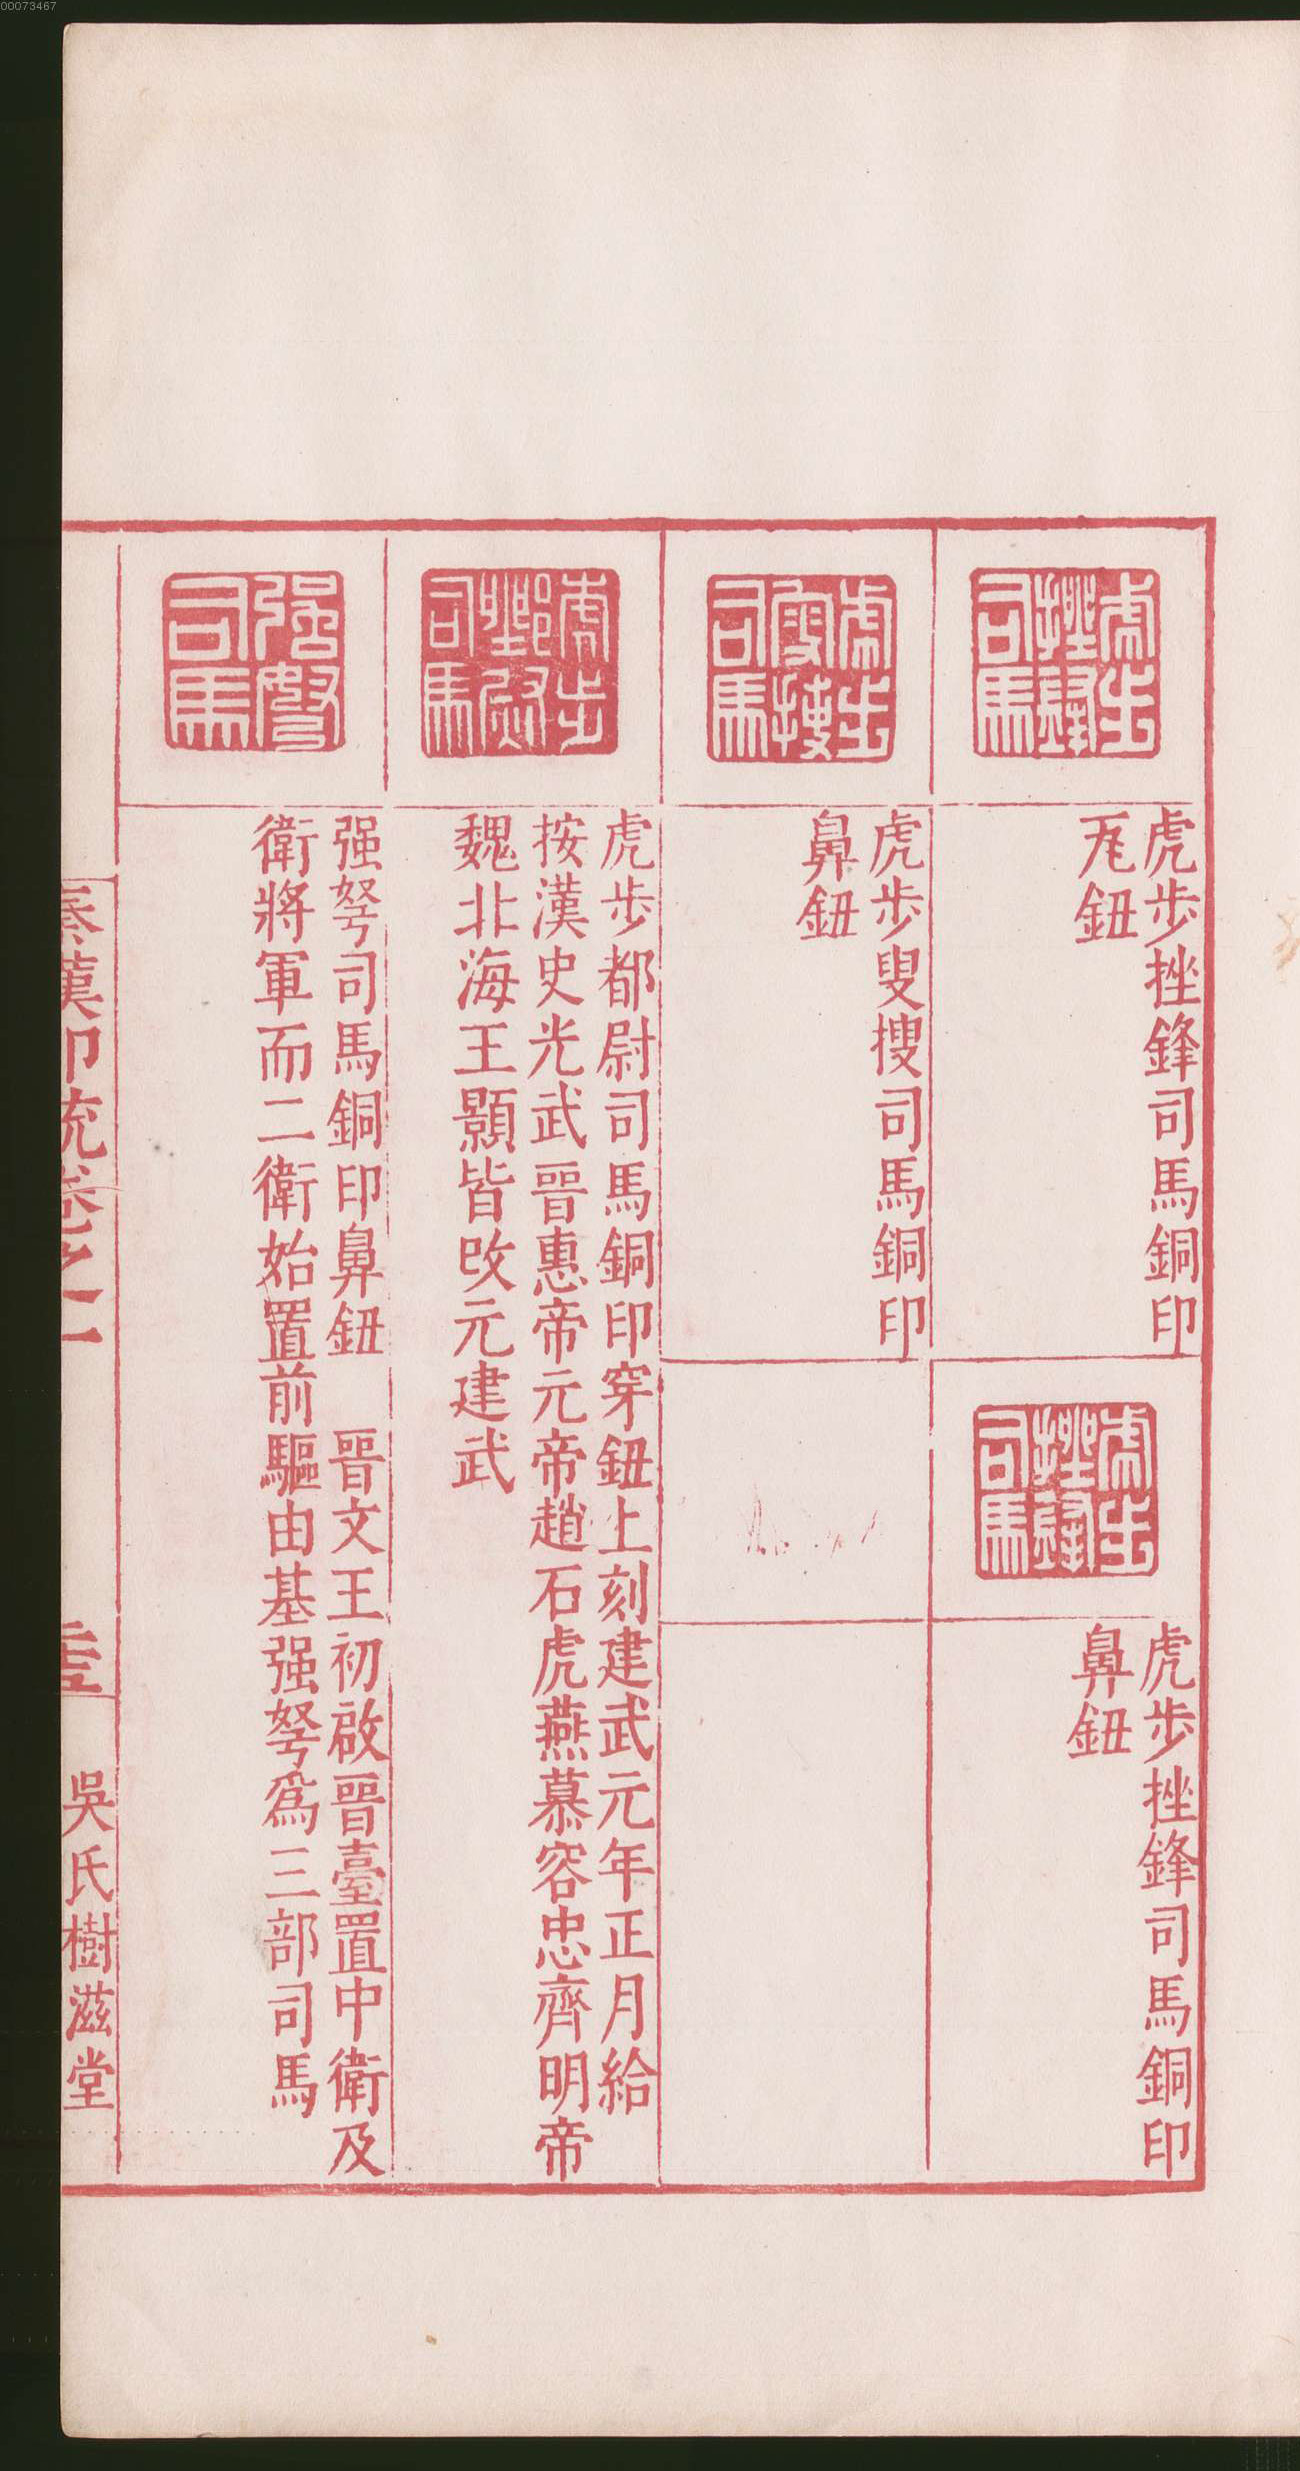 00073467
虎步挫鋒司馬
虎步挫鋒司馬銅印
瓦鈕
虎步挫鋒司馬
虎步挫鋒司馬銅印
鼻鈕
虎步叟搜司馬
虎步叟搜司馬銅印
鼻鈕
虎步都尉司馬
虎步都尉司馬銅印穿鈕上刻建武元年正月給
按漢史光武晉惠帝元帝趙石虎燕慕容忠齊明帝
魏北海王顥皆改元建武
强弩司馬
强弩司馬銅印鼻鈕　晉文王初啟晉臺置中衛及
衛將軍而二衛始置前驅由基强弩爲三部司馬
秦漢印統卷之一
吳氏樹滋堂